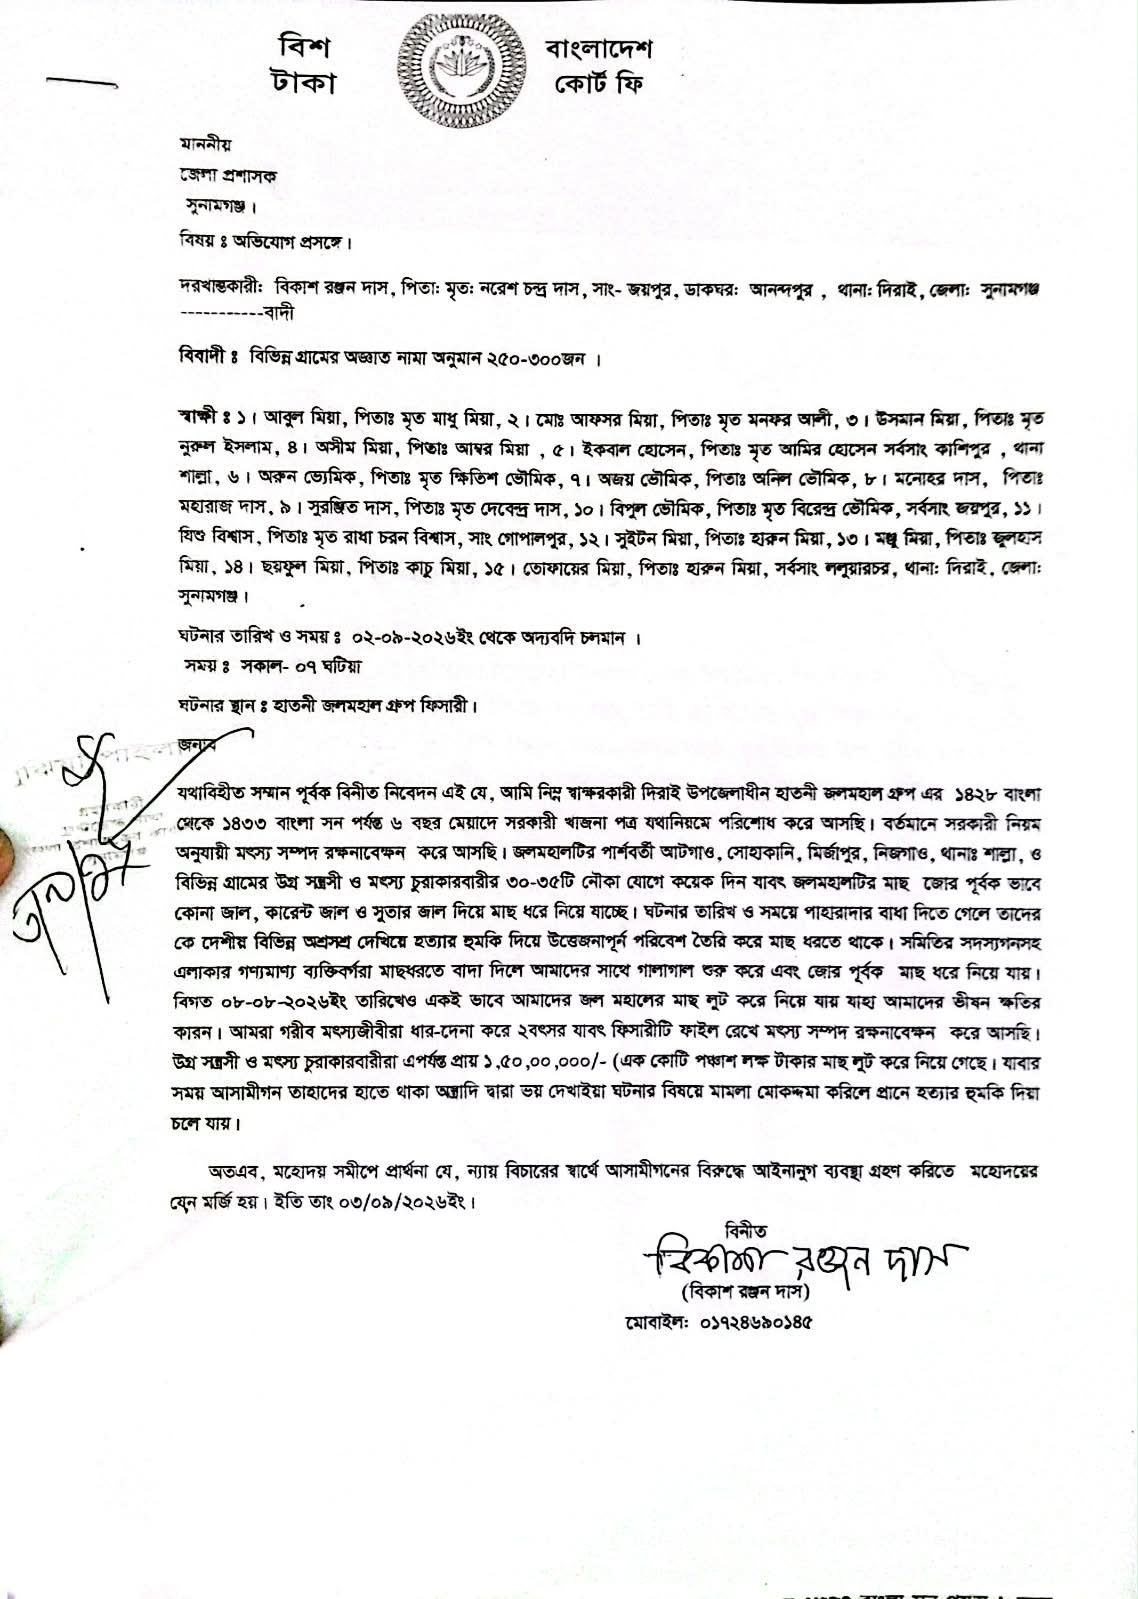 বিশ
টাকা
বাংলাদেশ
কোর্ট ফি
মাননীয়
জেলা প্রশাসক
সুনামগঞ্জ।
বিষয় ঃ অভিযোগ প্রসঙ্গে।
দরখাস্তকারী: বিকাশ রঞ্জন দাস, পিতা: মৃত: নরেশ চন্দ্র দাস, সাং- জয়পুর, ডাকঘর: আনন্দপুর , থানা: দিরাই, জেলা: সুনামগঞ্জ
-----------বাদী
বিবাদী ঃ বিভিন্ন গ্রামের অজ্ঞাত নামা অনুমান ২৫০-৩০০জন ।
স্বাক্ষী ঃ ১। আবুল মিয়া, পিতাঃ মৃত মাধু মিয়া, ২। মোঃ আফসর মিয়া, পিতাঃ মৃত মনফর আলী, ৩। উসমান মিয়া, পিতাঃ মৃত
নুরুল ইসলাম, ৪। অসীম মিয়া, পিতাঃ আম্বর মিয়া , ৫। ইকবাল হোসেন, পিতাঃ মৃত আমির হোসেন সর্বসাং কাশিপুর , থানা
শাল্লা, ৬। অরুন ভৌমিক, পিতাঃ মৃত ক্ষিতিশ ভৌমিক, ৭। অজয় ভৌমিক, পিতাঃ অনিল ভৌমিক, ৮। মনোহর দাস, পিতাঃ
মহারাজ দাস, ৯। সুরঞ্জিত দাস, পিতাঃ মৃত দেবেন্দ্র দাস, ১০। বিপুল ভৌমিক, পিতাঃ মৃত বিরেন্দ্র ভৌমিক, সর্বসাং জয়পুর, ১১।
যিশু বিশ্বাস, পিতাঃ মৃত রাধা চরন বিশ্বাস, সাং গোপালপুর, ১২। সুইটন মিয়া, পিতাঃ হারুন মিয়া, ১৩। মঞ্জু মিয়া, পিতাঃ জুলহাস
মিয়া, ১৪। ছয়ফুল মিয়া, পিতাঃ কাচু মিয়া, ১৫। তোফায়ের মিয়া, পিতাঃ হারুন মিয়া, সর্বসাং ললুয়ারচর, থানা: দিরাই, জেলা:
সুনামগঞ্জ।
ঘটনার তারিখ ও সময় ঃ ০২-০৯-২০২৬ইং থেকে অদ্যবদি চলমান ।
সময় ঃ সকাল- ০৭ ঘটিয়া
ঘটনার স্থান ঃ হাতনী জলমহাল গ্রুপ ফিসারী।
জনাব
যথাবিহীত সম্মান পূর্বক বিনীত নিবেদন এই যে, আমি নিম্ন স্বাক্ষরকারী দিরাই উপজেলাধীন হাতনী জলমহাল গ্রুপ এর ১৪২৮ বাংলা
থেকে ১৪৩৩ বাংলা সন পর্যন্ত ৬ বছর মেয়াদে সরকারী খাজনা পত্র যথানিয়মে পরিশোধ করে আসছি। বর্তমানে সরকারী নিয়ম
অনুযায়ী মৎস্য সম্পদ রক্ষনাবেক্ষন করে আসছি। জলমহালটির পার্শবর্তী আটগাও, সোহাকানি, মির্জাপুর, নিজগাও, থানাঃ শাল্লা, ও
বিভিন্ন গ্রামের উগ্র সন্ত্রসী ও মৎস্য চুরাকারবারীর ৩০-৩৫টি নৌকা যোগে কয়েক দিন যাবৎ জলমহালটির মাছ জোর পূর্বক ভাবে
কোনা জাল, কারেন্ট জাল ও সুতার জাল দিয়ে মাছ ধরে নিয়ে যাচ্ছে। ঘটনার তারিখ ও সময়ে পাহারাদার বাধা দিতে গেলে তাদের
কে দেশীয় বিভিন্ন অশ্রসশ্র দেখিয়ে হত্যার হুমকি দিয়ে উত্তেজনাপূর্ন পরিবেশ তৈরি করে মাছ ধরতে থাকে। সমিতির সদস্যগনসহ
এলাকার গণ্যমাণ্য ব্যক্তিবর্গরা মাছধরতে বাদা দিলে আমাদের সাথে গালাগাল শুরু করে এবং জোর পূর্বক মাছ ধরে নিয়ে যায়।
বিগত ০৮-০৮-২০২৬ইং তারিখেও একই ভাবে আমাদের জল মহালের মাছ লুট করে নিয়ে যায় যাহা আমাদের ভীষন ক্ষতির
কারন। আমরা গরীব মৎস্যজীবীরা ধার-দেনা করে ২বৎসর যাবৎ ফিসারীটি ফাইল রেখে মৎস্য সম্পদ রক্ষনাবেক্ষন করে আসছি।
উগ্র সন্ত্রসী ও মৎস্য চুরাকারবারীরা এপর্যন্ত প্রায় ১,৫০,০০,০০০/- (এক কোটি পঞ্চাশ লক্ষ টাকার মাছ লুট করে নিয়ে গেছে। যাবার
সময় আসামীগন তাহাদের হাতে থাকা অস্ত্রাদি দ্বারা ভয় দেখাইয়া ঘটনার বিষয়ে মামলা মোকদ্দমা করিলে প্রানে হত্যার হুমকি দিয়া
চলে যায়।
অতএব, মহোদয় সমীপে প্রার্থনা যে, ন্যায় বিচারের স্বার্থে আসামীগনের বিরুদ্ধে আইনানুগ ব্যবস্থা গ্রহণ করিতে মহোদয়ের
যেন মর্জি হয়। ইতি তাং ০৩/০৯/২০২৬ইং।
বিনীত
বিকাশ রঞ্জন দাস
(বিকাশ রঞ্জন দাস)
মোবাইল: ০১৭২৪৬৯০১৪৫